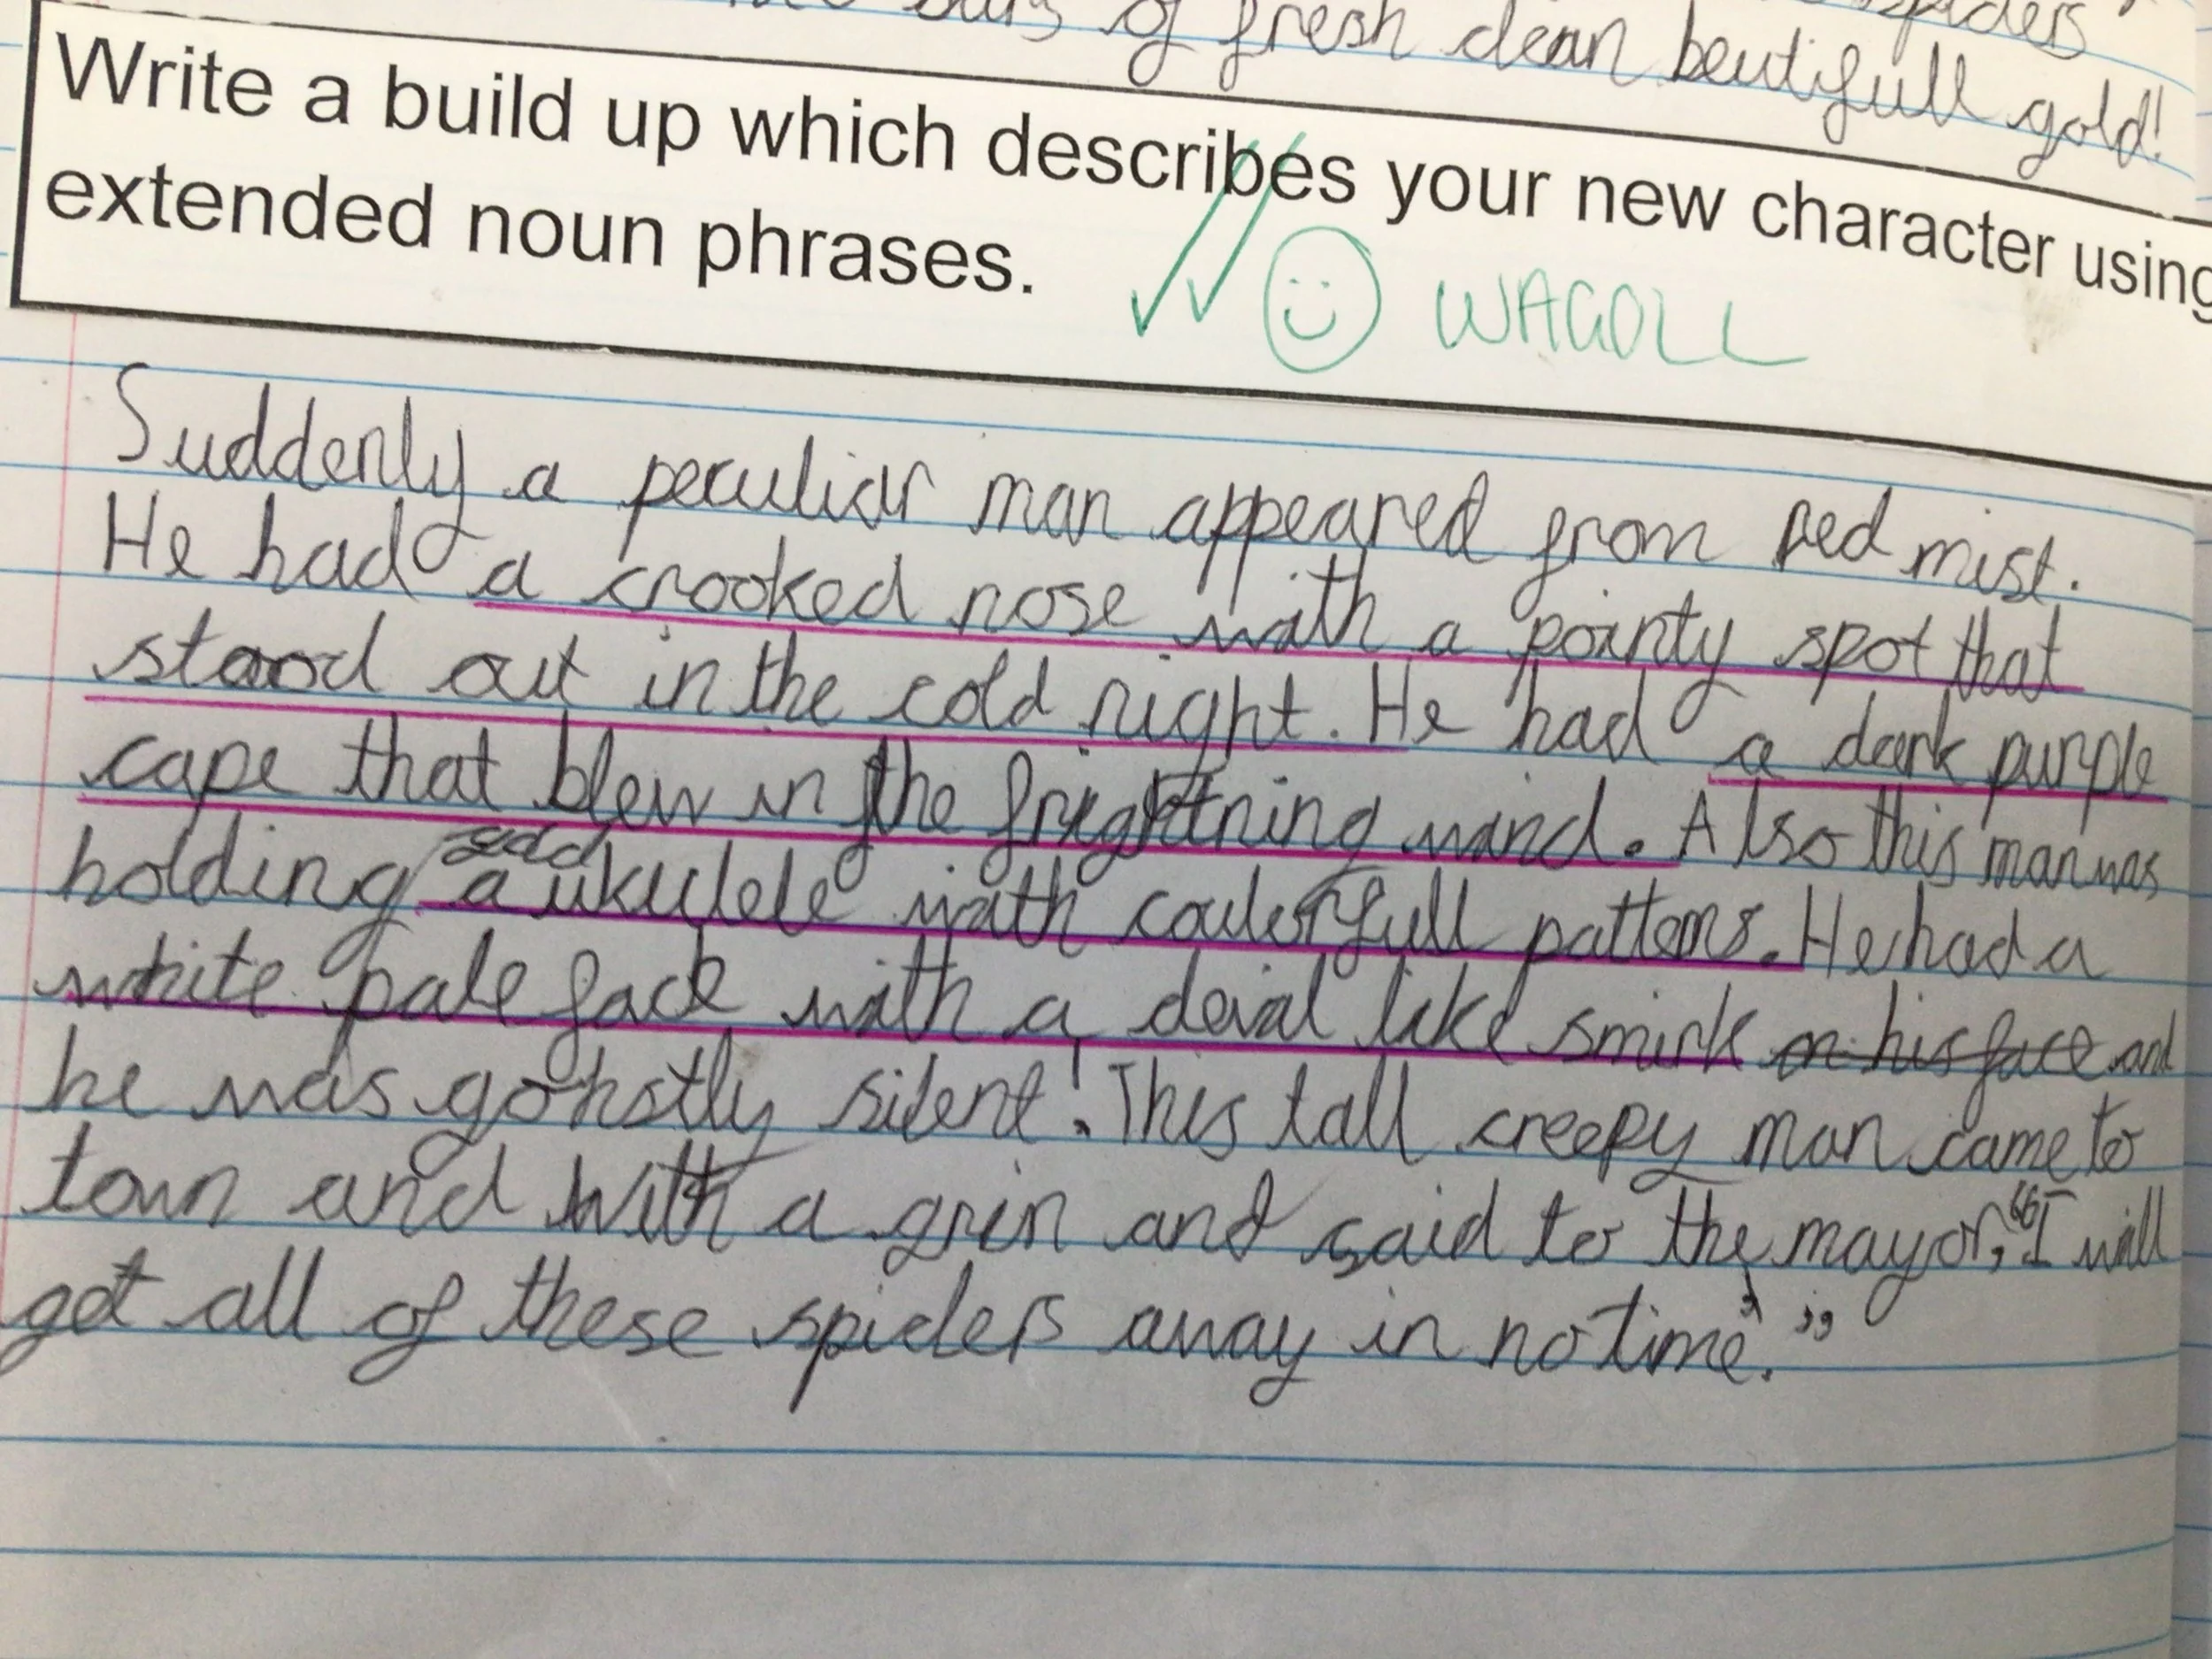 spiders
of fresh clean beutifull gold!
Write a build up which describes your new character using
extended noun phrases.
WAGOLL
Suddenly a peculiar man appeared from red mist.
He had a crooked nose with a pointy spot that
stood out in the cold night. He had a dark purple
cape that blew in the frightning wind. Also this man was
holding a ukulele with coulerfull patterns. He had a
white pale face with a devial like smirk on his face and
he was gohstly silent! This tall creepy man came to
town and with a grin and said to the mayor, "I will
get all of these spiders away in no time."